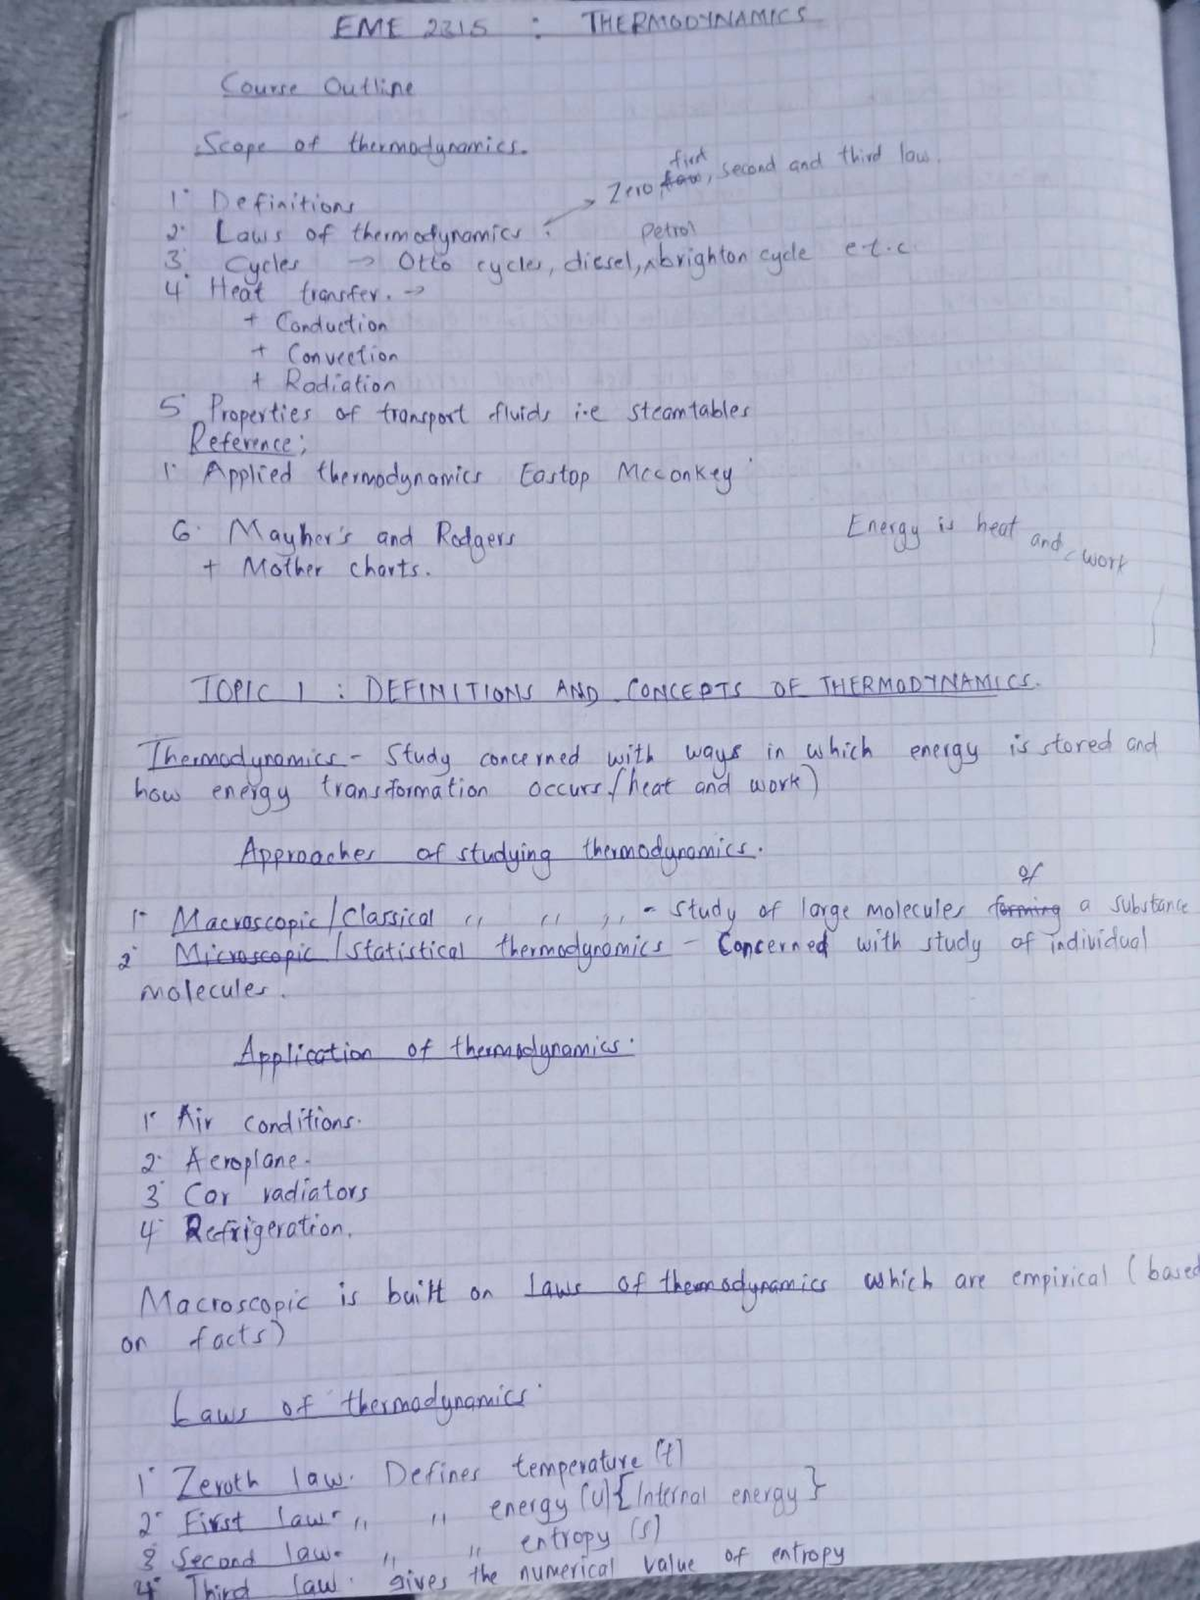 EME 2315 : THERMODYNAMICS
Course Outline
Scope of thermodynamics.
1. Definitions
2. Laws of thermodynamics : → Zero, first, second and third law.
3. Cycles → Otto cycles, diesel, petrol brighton cycle e.t.c
4. Heat transfer. →
+ Conduction
+ Convection
+ Radiation
5. Properties of transport fluids i.e steamtables
Reference;
1. Applied thermodynamics Eastop Mcconkey
6. Mayher's and Rodgers
+ Mother charts.
Energy is heat and work
TOPIC 1 : DEFINITIONS AND CONCEPTS OF THERMODYNAMICS.
Thermodynamics - Study concerned with ways in which energy is stored and
how energy transformation occurs (heat and work)
Approaches of studying thermodynamics.
1. Macroscopic/Classical ,, ,, ,, - study of large molecules forming of a substance
2. Microscopic/statistical thermodynamics - Concerned with study of individual
molecules.
Application of thermodynamics.
1. Air conditions.
2. Aeroplane.
3. Car radiators
4. Refrigeration.
Macroscopic is built on laws of thermodynamics which are empirical (based
on facts)
Laws of thermodynamics.
1. Zeroth law. Defines temperature (t)
2. First law. ,, ,, energy (U) {Internal energy}
3. Second law. ,, ,, entropy (s)
4. Third law. gives the numerical value of entropy